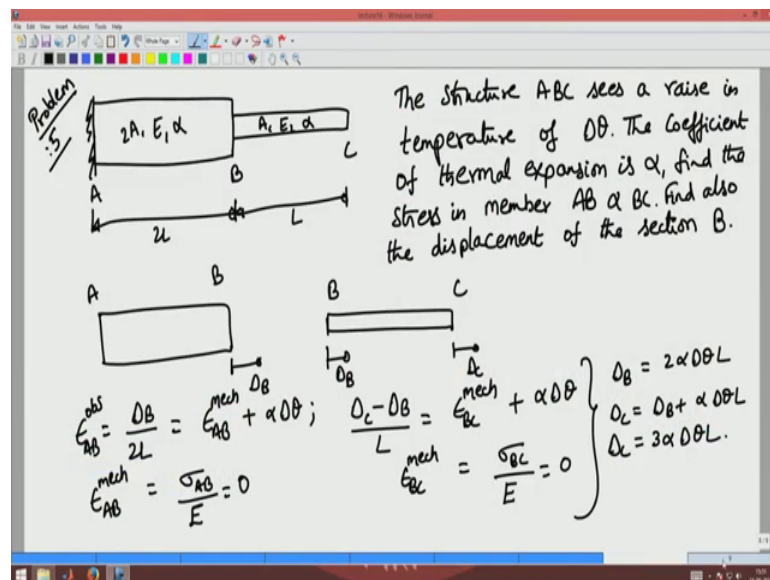 lecture16 - Windows Journal
File Edit View Insert Actions Tools Help
Problem
:5
2A, E, α
A, E, α
A
B
C
2L
L
The structure ABC sees a raise in
temperature of Δθ. The Coefficient
of thermal expansion is α, find the
stress in member AB & BC. Find also
the displacement of the section B.
A B
Δ_B
B C
Δ_B Δ_C
ε_AB^obs = Δ_B / 2L = ε_AB^mech + αΔθ ;
ε_AB^mech = σ_AB / E = 0
Δ_C - Δ_B / L = ε_BC^mech + αΔθ
ε_BC^mech = σ_BC / E = 0
Δ_B = 2αΔθL
Δ_C = Δ_B + αΔθL
Δ_C = 3αΔθL.